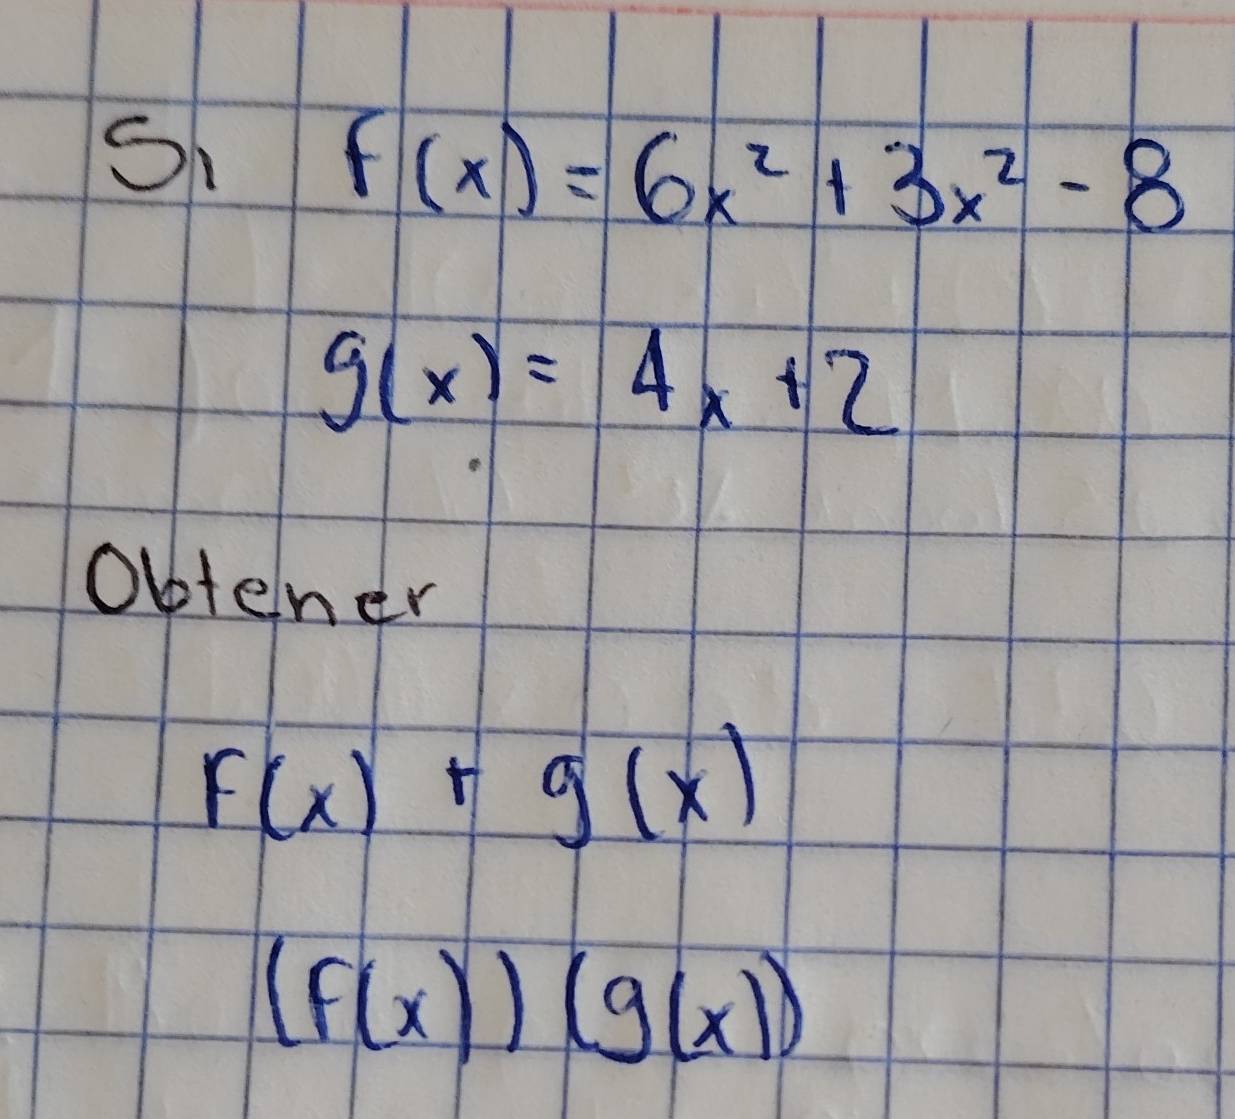 Si f(x) = 6x² + 3x² - 8
g(x) = 4x + 2
Obtener
F(x) + g(x)
(F(x)) (g(x))